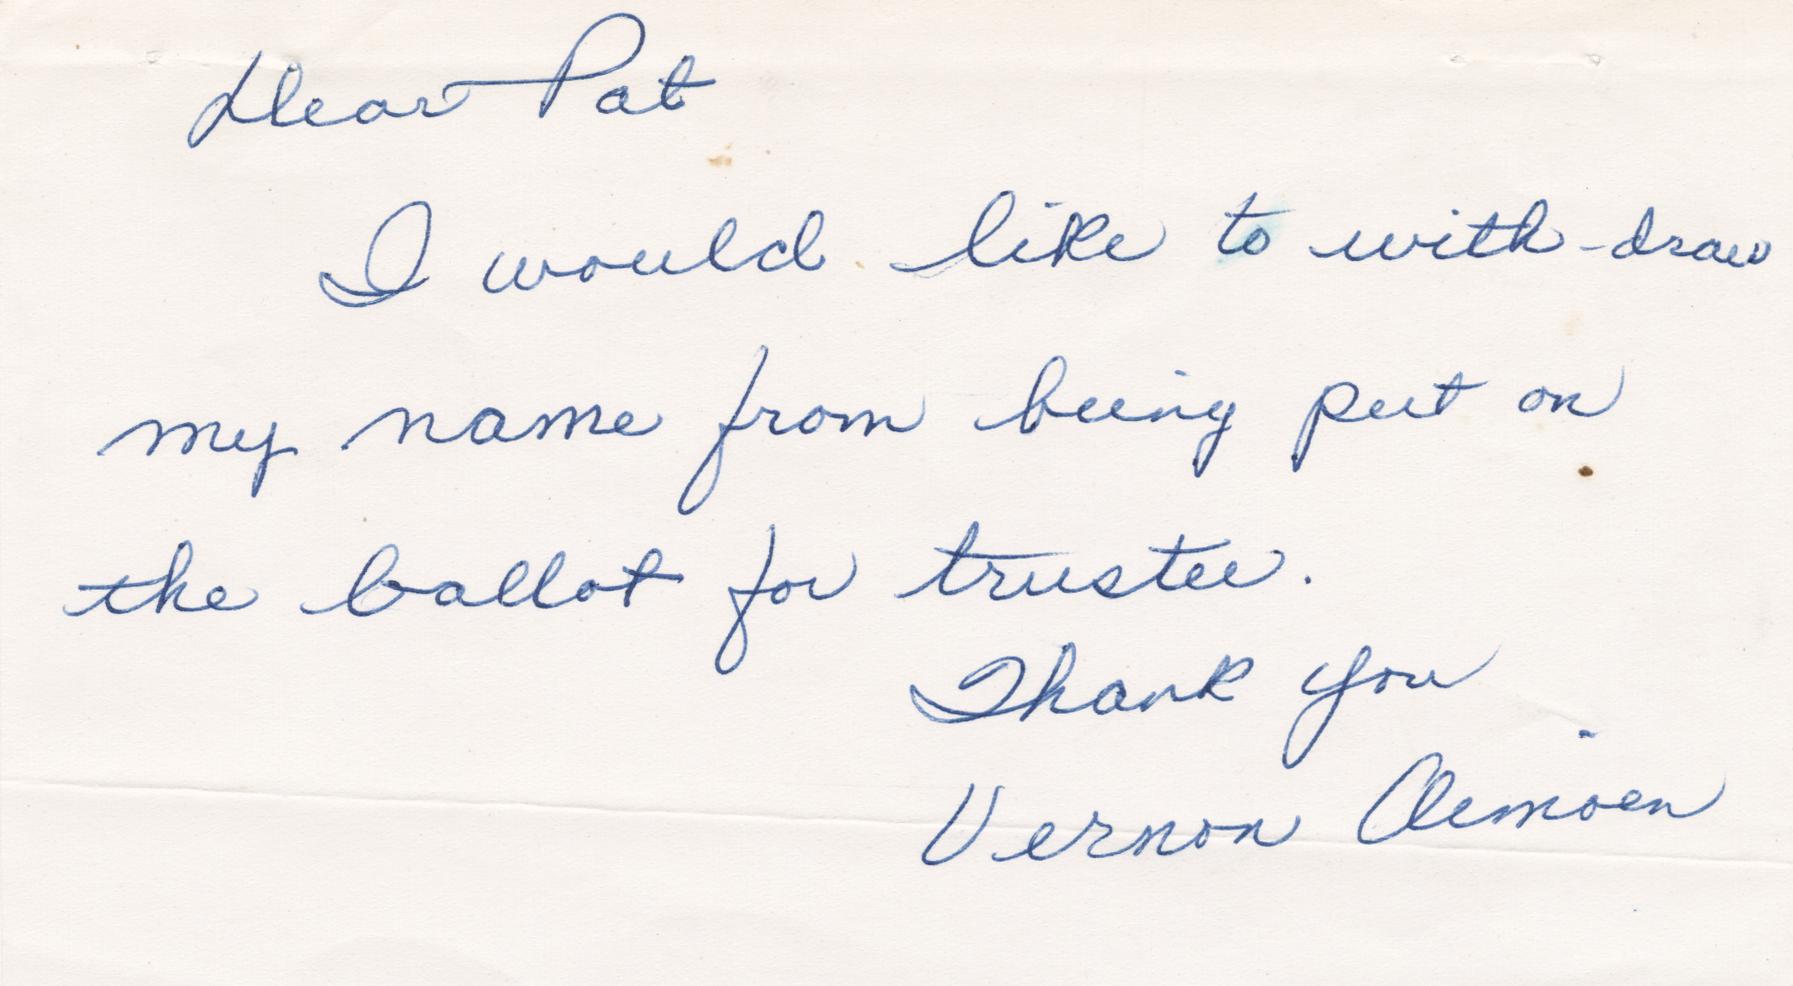 Dear Pat
I would like to with-draw
my name from being put on
the ballot for trustee.
Thank you
Vernon